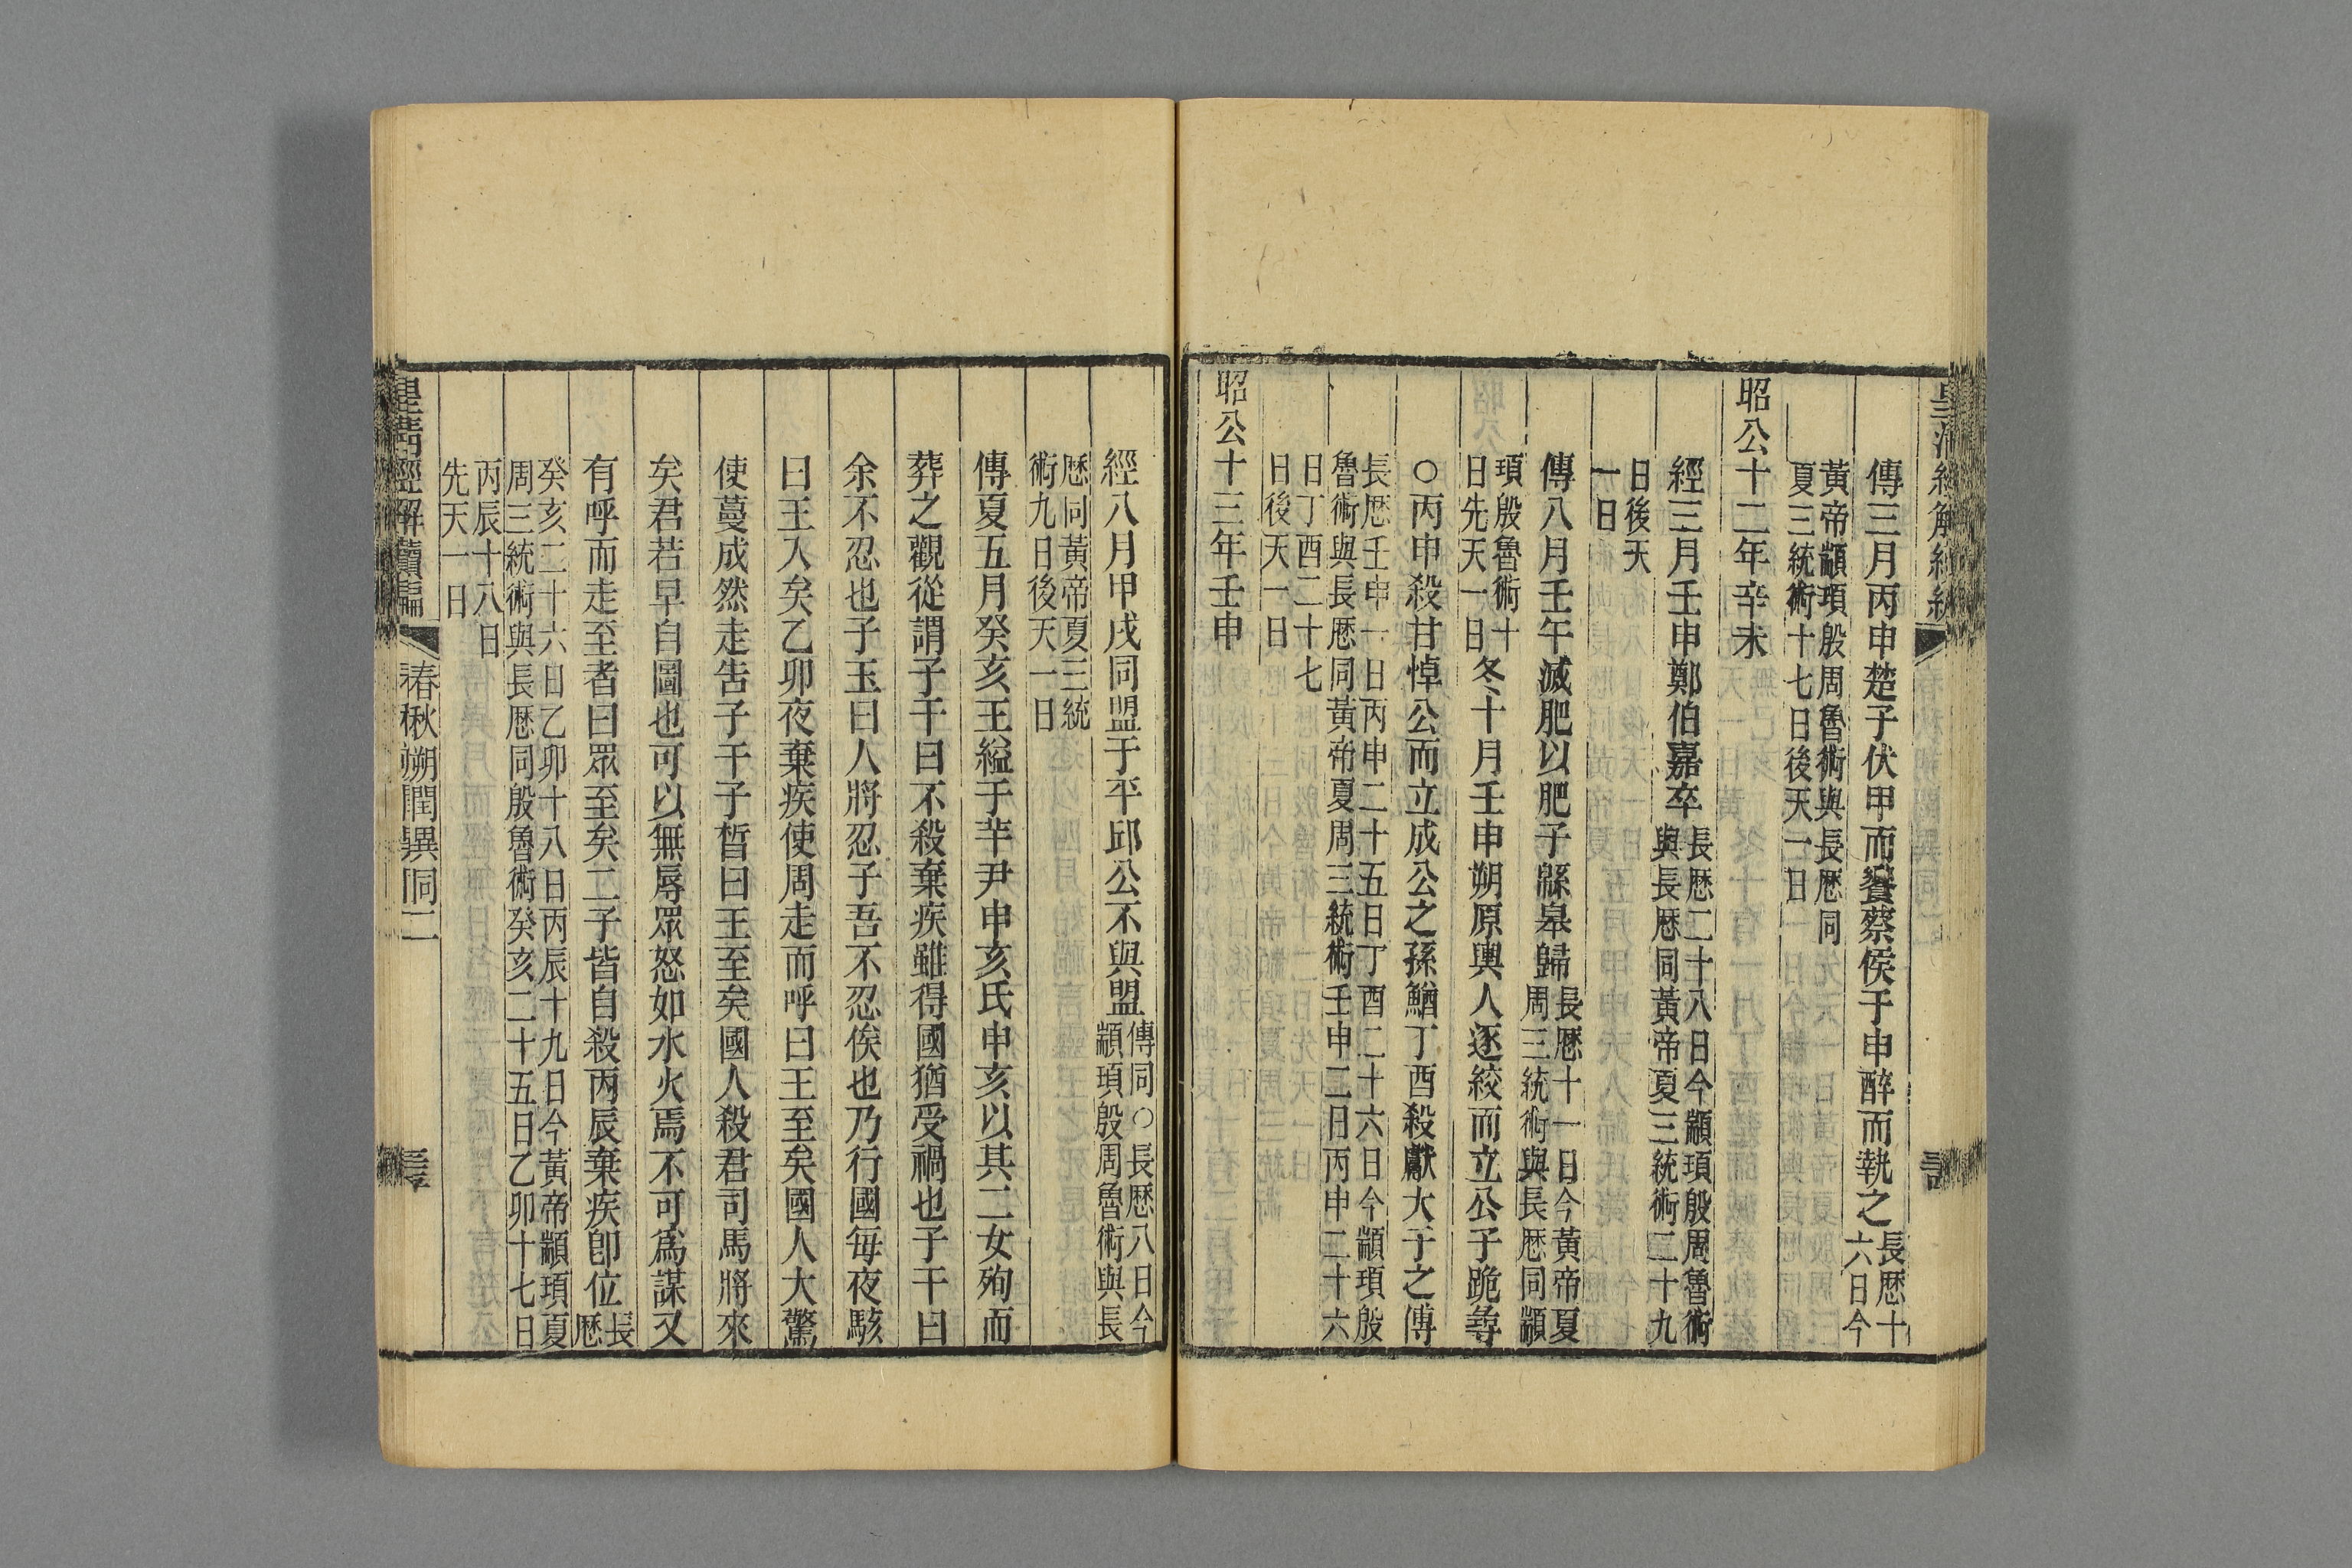 傳三月丙申楚子伏甲而饗蔡侯于申醉而執之長厯十六日今
黃帝顓頊殷周魯術與長厯同
夏三統術十七日後天一日
昭公十二年辛未
經三月壬申鄭伯嘉卒長厯二十八日今顓頊殷周魯術
與長厯同黃帝夏三統術二十九
日後天
一日
傳八月壬午滅肥以肥子緜皋歸長厯十一日今黃帝夏
周三統術與長厯同顓
頊殷魯術十
日先天一日冬十月壬申朔原輿人逐絞而立公子跪尋
○丙申殺甘悼公而立成公之孫鰌丁酉殺獻大子之傅
長厯壬申一日丙申二十五日丁酉二十六日今顓頊殷
魯術與長厯同黃帝夏周三統術壬申二日丙申二十六
日丁酉二十七
日後天一日
昭公十三年壬申
經八月甲戌同盟于平邱公不與盟傳同○長厯八日今
顓頊殷周魯術與長
厯同黃帝夏三統
術九日後天一日
傳夏五月癸亥王縊于芈尹申亥氏申亥以其二女殉而
葬之觀從謂子干曰不殺棄疾雖得國猶受禍也子干曰
余不忍也子玉曰人將忍子吾不忍俟也乃行國每夜駭
曰王入矣乙卯夜棄疾使周走而呼曰王至矣國人大驚
使蔓成然走告子干子晳曰王至矣國人殺君司馬將來
矣君若早自圖也可以無辱眾怒如水火焉不可為謀又
有呼而走至者曰眾至矣二子皆自殺丙辰棄疾卽位長
厯
癸亥二十六日乙卯十八日丙辰十九日今黃帝顓頊夏
周三統術與長厯同殷魯術癸亥二十五日乙卯十七日
丙辰十八日
先天一日
皇清經解續編 春秋朔閏異同二